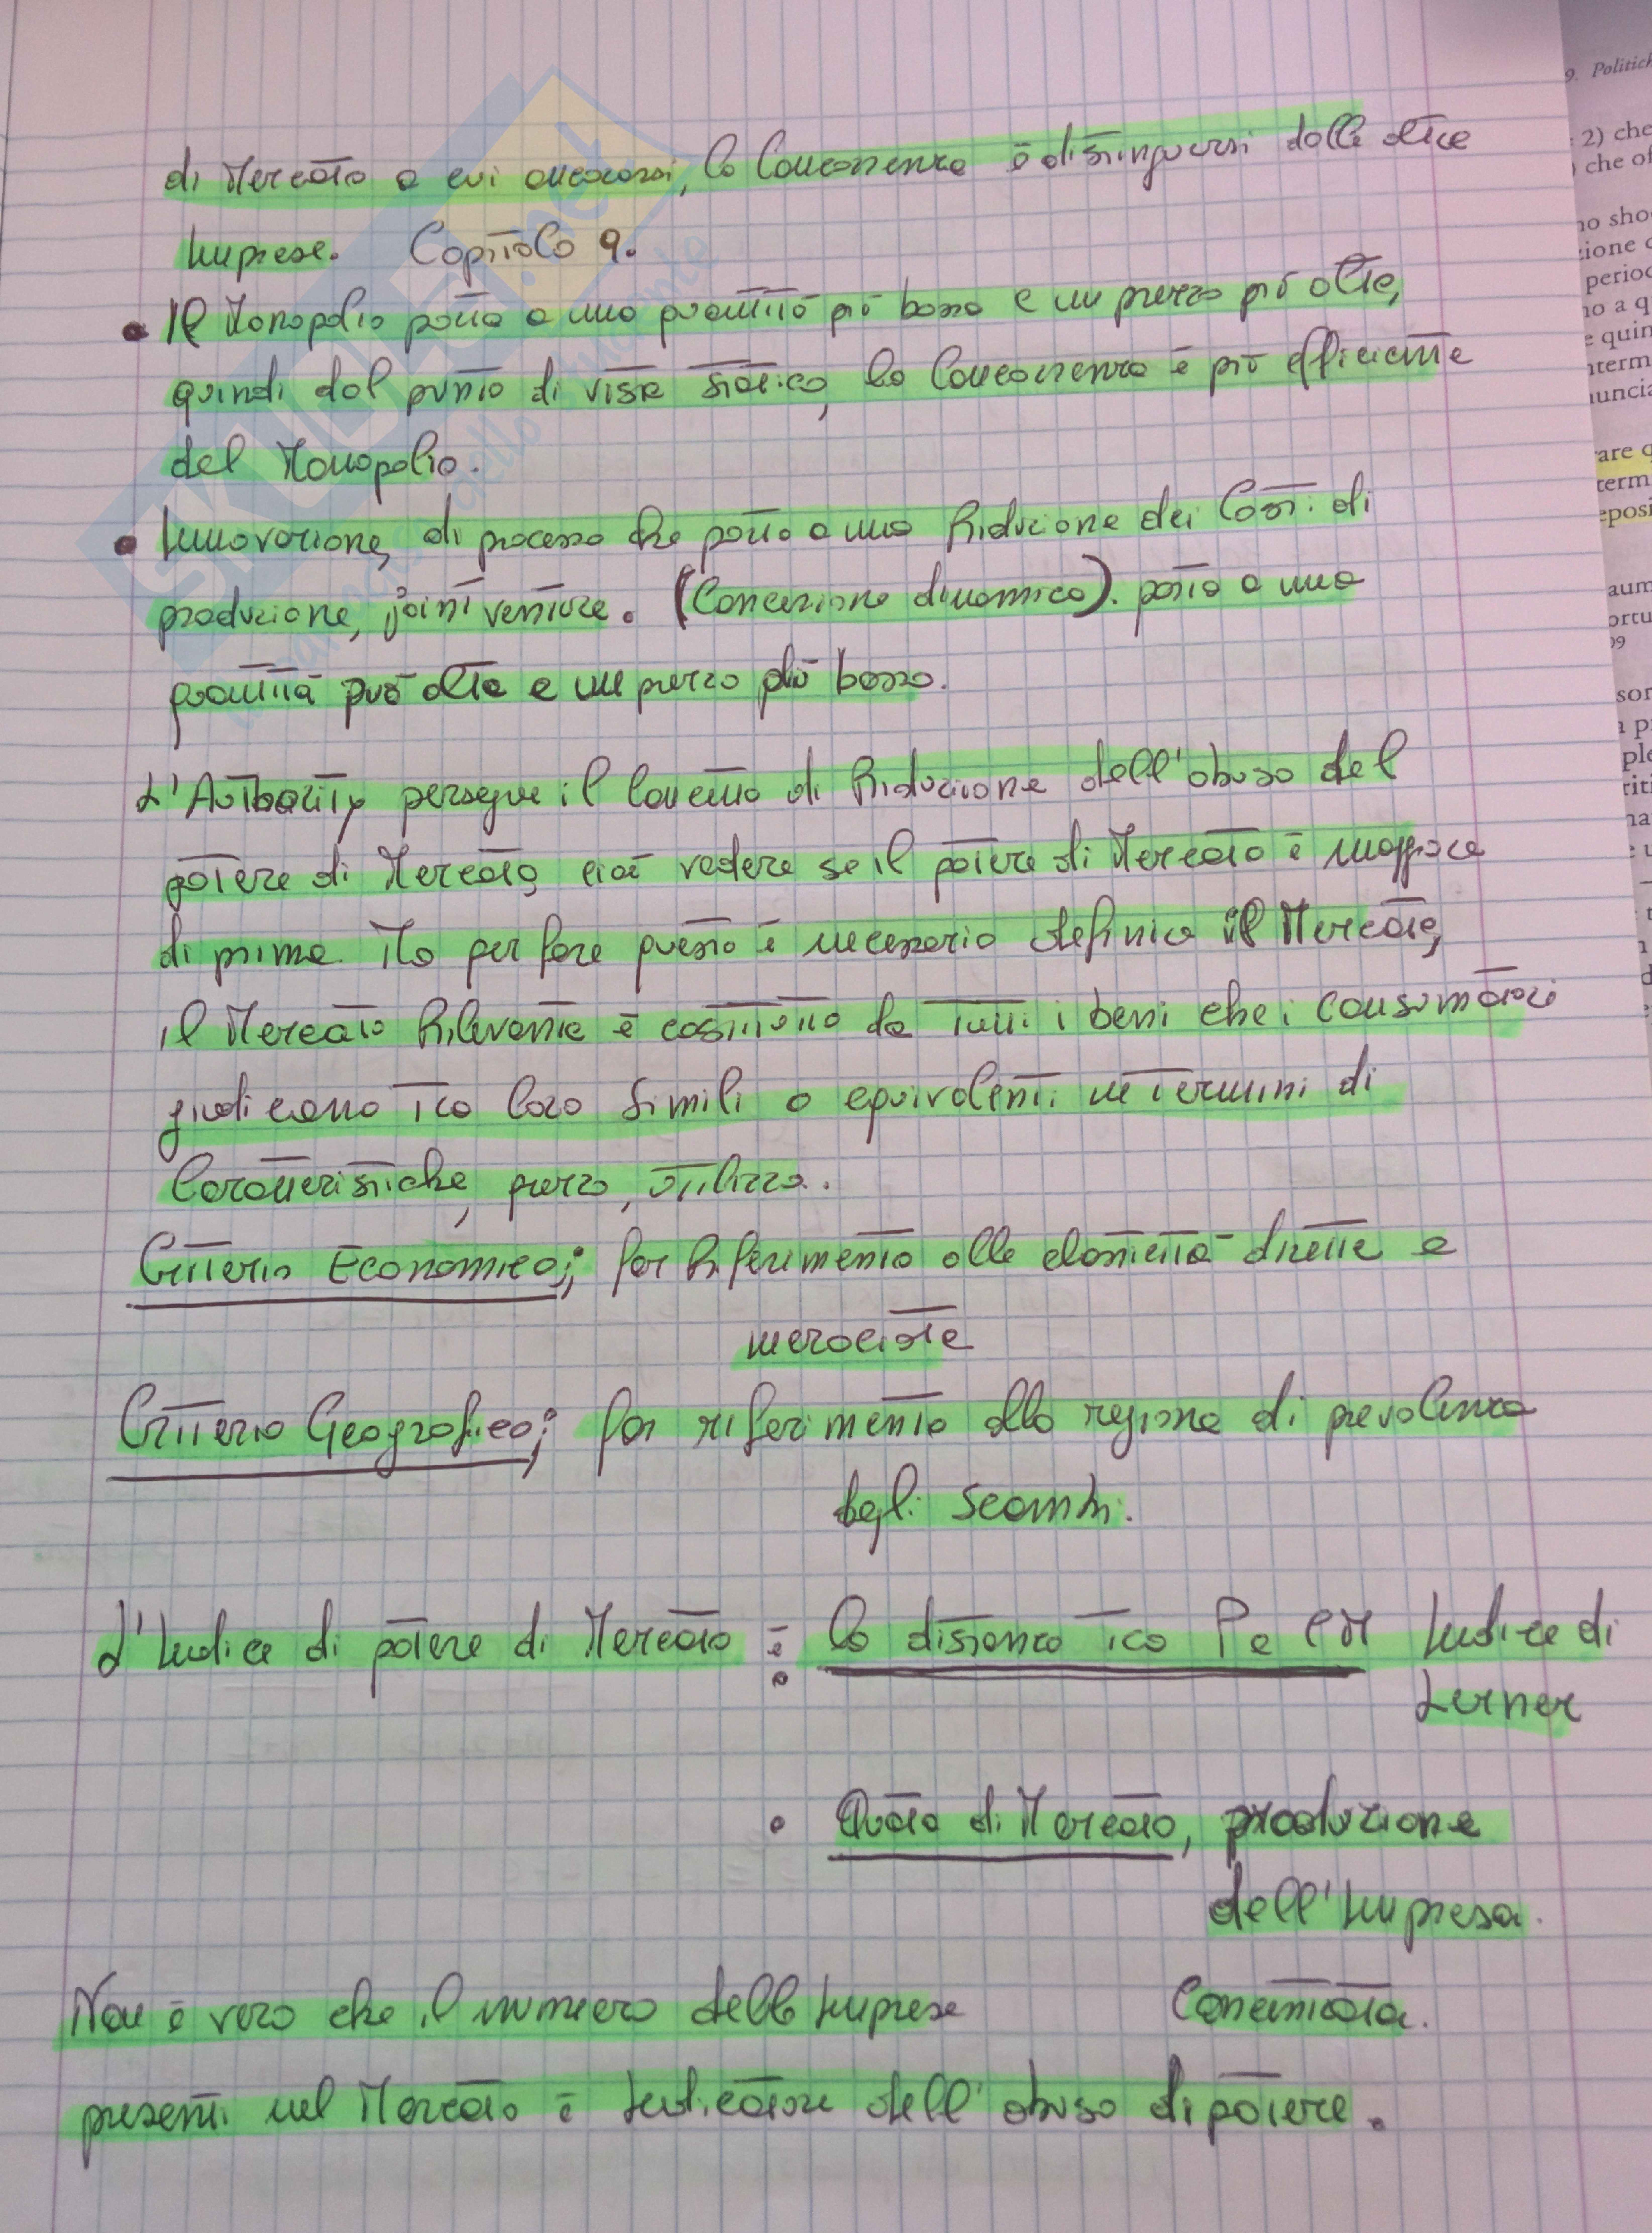 di Mercato a cui ancorarsi, la Concorrenza è distinguersi dalle altre
Imprese. Capitolo 9.
• Il Monopolio porta a una quantità più bassa e un prezzo più alto,
quindi dal punto di vista statico, la Concorrenza è più efficiente
del Monopolio.
• Innovazione, di processo che porta a una Riduzione dei Costi di
produzione, joint venture. (Concezione dinamica). porta a una
quantità più alta e un prezzo più basso.
L'Authority persegue il Concetto di Riduzione dell'abuso del
potere di Mercato, cioè vedere se il potere di Mercato è maggiore
di prima. Ma per fare questo è necessario definire il Mercato,
il Mercato Rilevante è costituito da tutti i beni che i consumatori
giudicano tra loro Simili o equivalenti in termini di
Caratteristiche, prezzo, utilizzo.
Criterio Economico; fa Riferimento alle elasticità dirette e
incrociate
Criterio Geografico; fa riferimento alla regione di prevalenza
degli scambi.
L'Indice di potere di Mercato è: La distanza tra P e CM Indice di
Lerner
• Quota di Mercato, produzione
dell'Impresa.
Non è vero che il numero delle Imprese Concentrata.
presenti nel Mercato è Indicatore dell'abuso di potere.
SKUOLA.net
9. Politich
2) che
che of
no sho
zione c
period
no a q
e quin
nterm
nuncia
rare q
term
eposi
aum
ortu
99
sor
a p
ple
riti
na